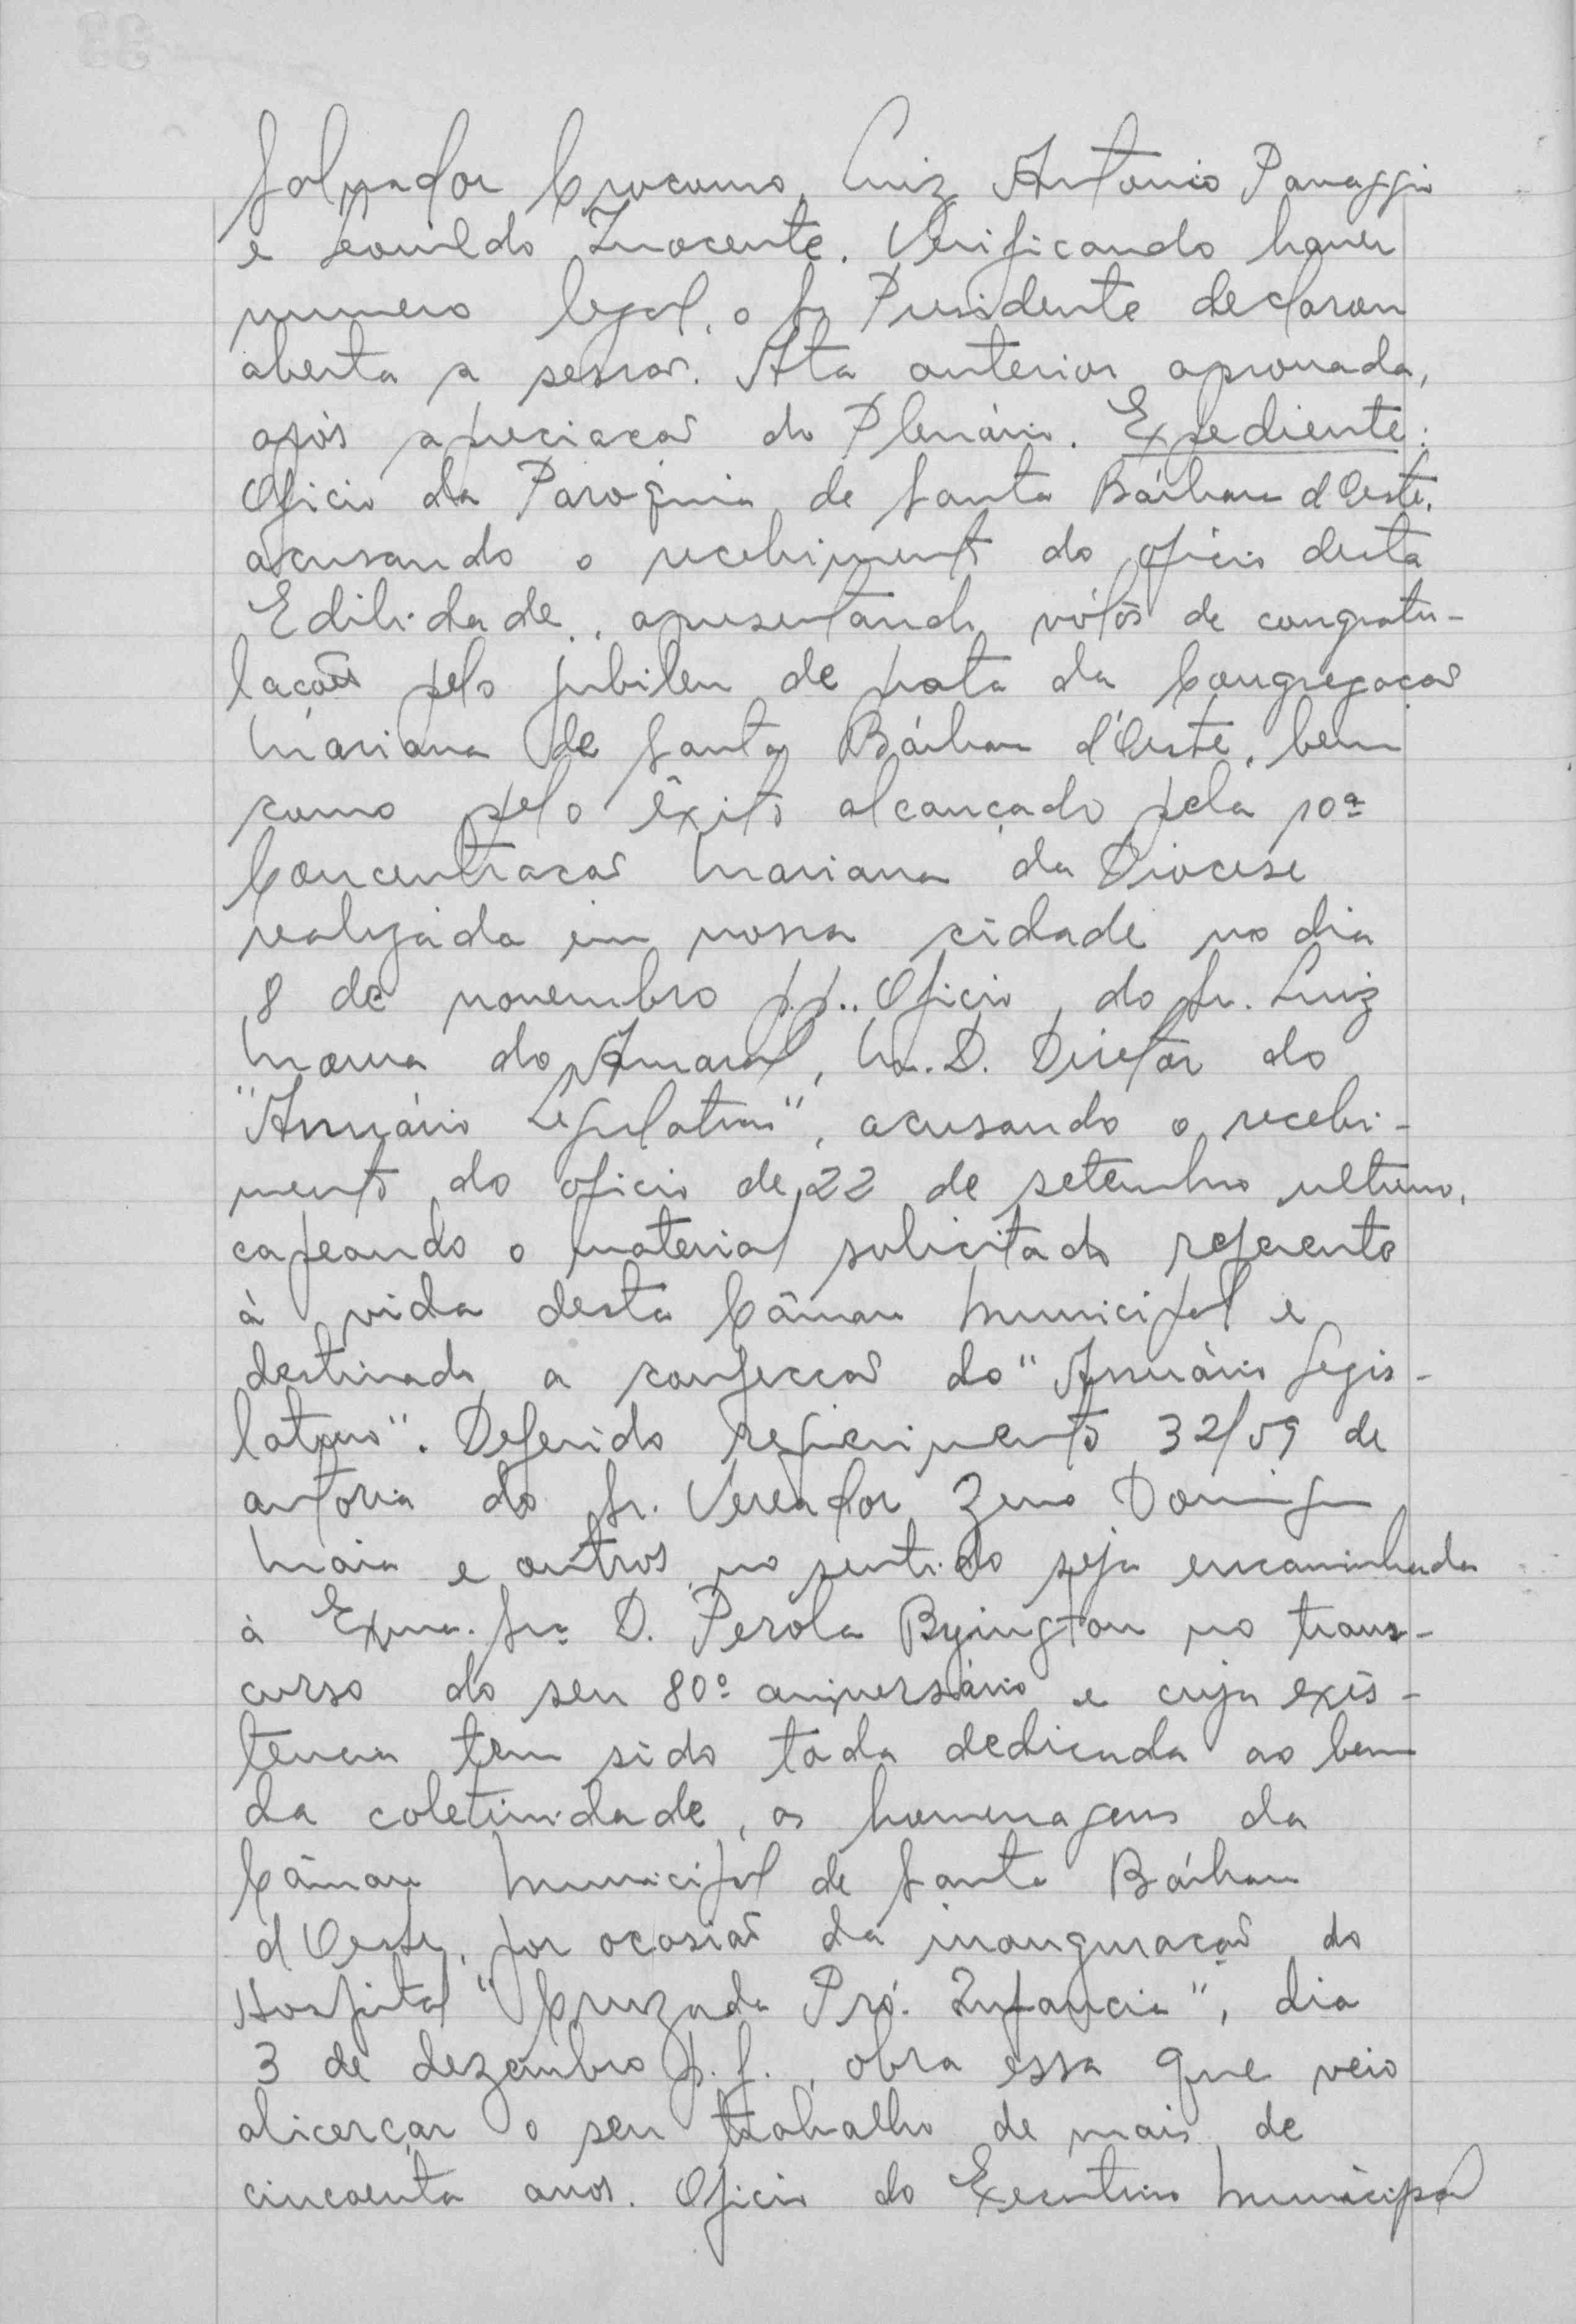 Salvador Crocomo, Luiz Antonio Panaggio
e Leonildo Inocente. Verificando haver
numero legal, o Sr Presidente declarou
aberta a sessão. Ata anterior aprovada,
após apreciação do Plenário. Expediente:
Oficio da Paroquia de Santa Bárbara d'Oeste,
acusando o recebimento do oficio desta
Edilidade, apresentando vótos de congratu-
lações pelo jubileu de prata da Congregação
Mariana de Santa Bárbara d'Oeste, bem
como pelo êxito alcançado pela 10ª
Concentração Mariana da Diocese
realizada em nossa cidade no dia
8 de novembro p.p.. Oficio do Sr. Luiz
do Amaral, M. D. Diretor do
"Anuário Legislativo", acusando o recebi-
mento do oficio de 22 de setembro ultimo,
capeando o material solicitado referente
à vida desta Câmara Municipal e
destinado a confecção do "Anuário Legis-
lativo". Deferido requerimento 32/59 de
autoria do Sr. Vereador Zeno Domingues
Maia e outros no sentido seja encaminhada
à Exma. Srª D. Perola Byington no trans-
curso do seu 80º aniversário e cuja exis-
tencia tem sido toda dedicada ao bem
da coletividade, as homenagens da
Câmara Municipal de Santa Bárbara
d'Oeste, por ocasião da inauguração do
Hospital "Cruzada Pró. Infancia", dia
3 de dezembro p.f., obra essa que veio
alicerçar o seu trabalho de mais de
cincoenta anos. Oficio do Executivo Municipal